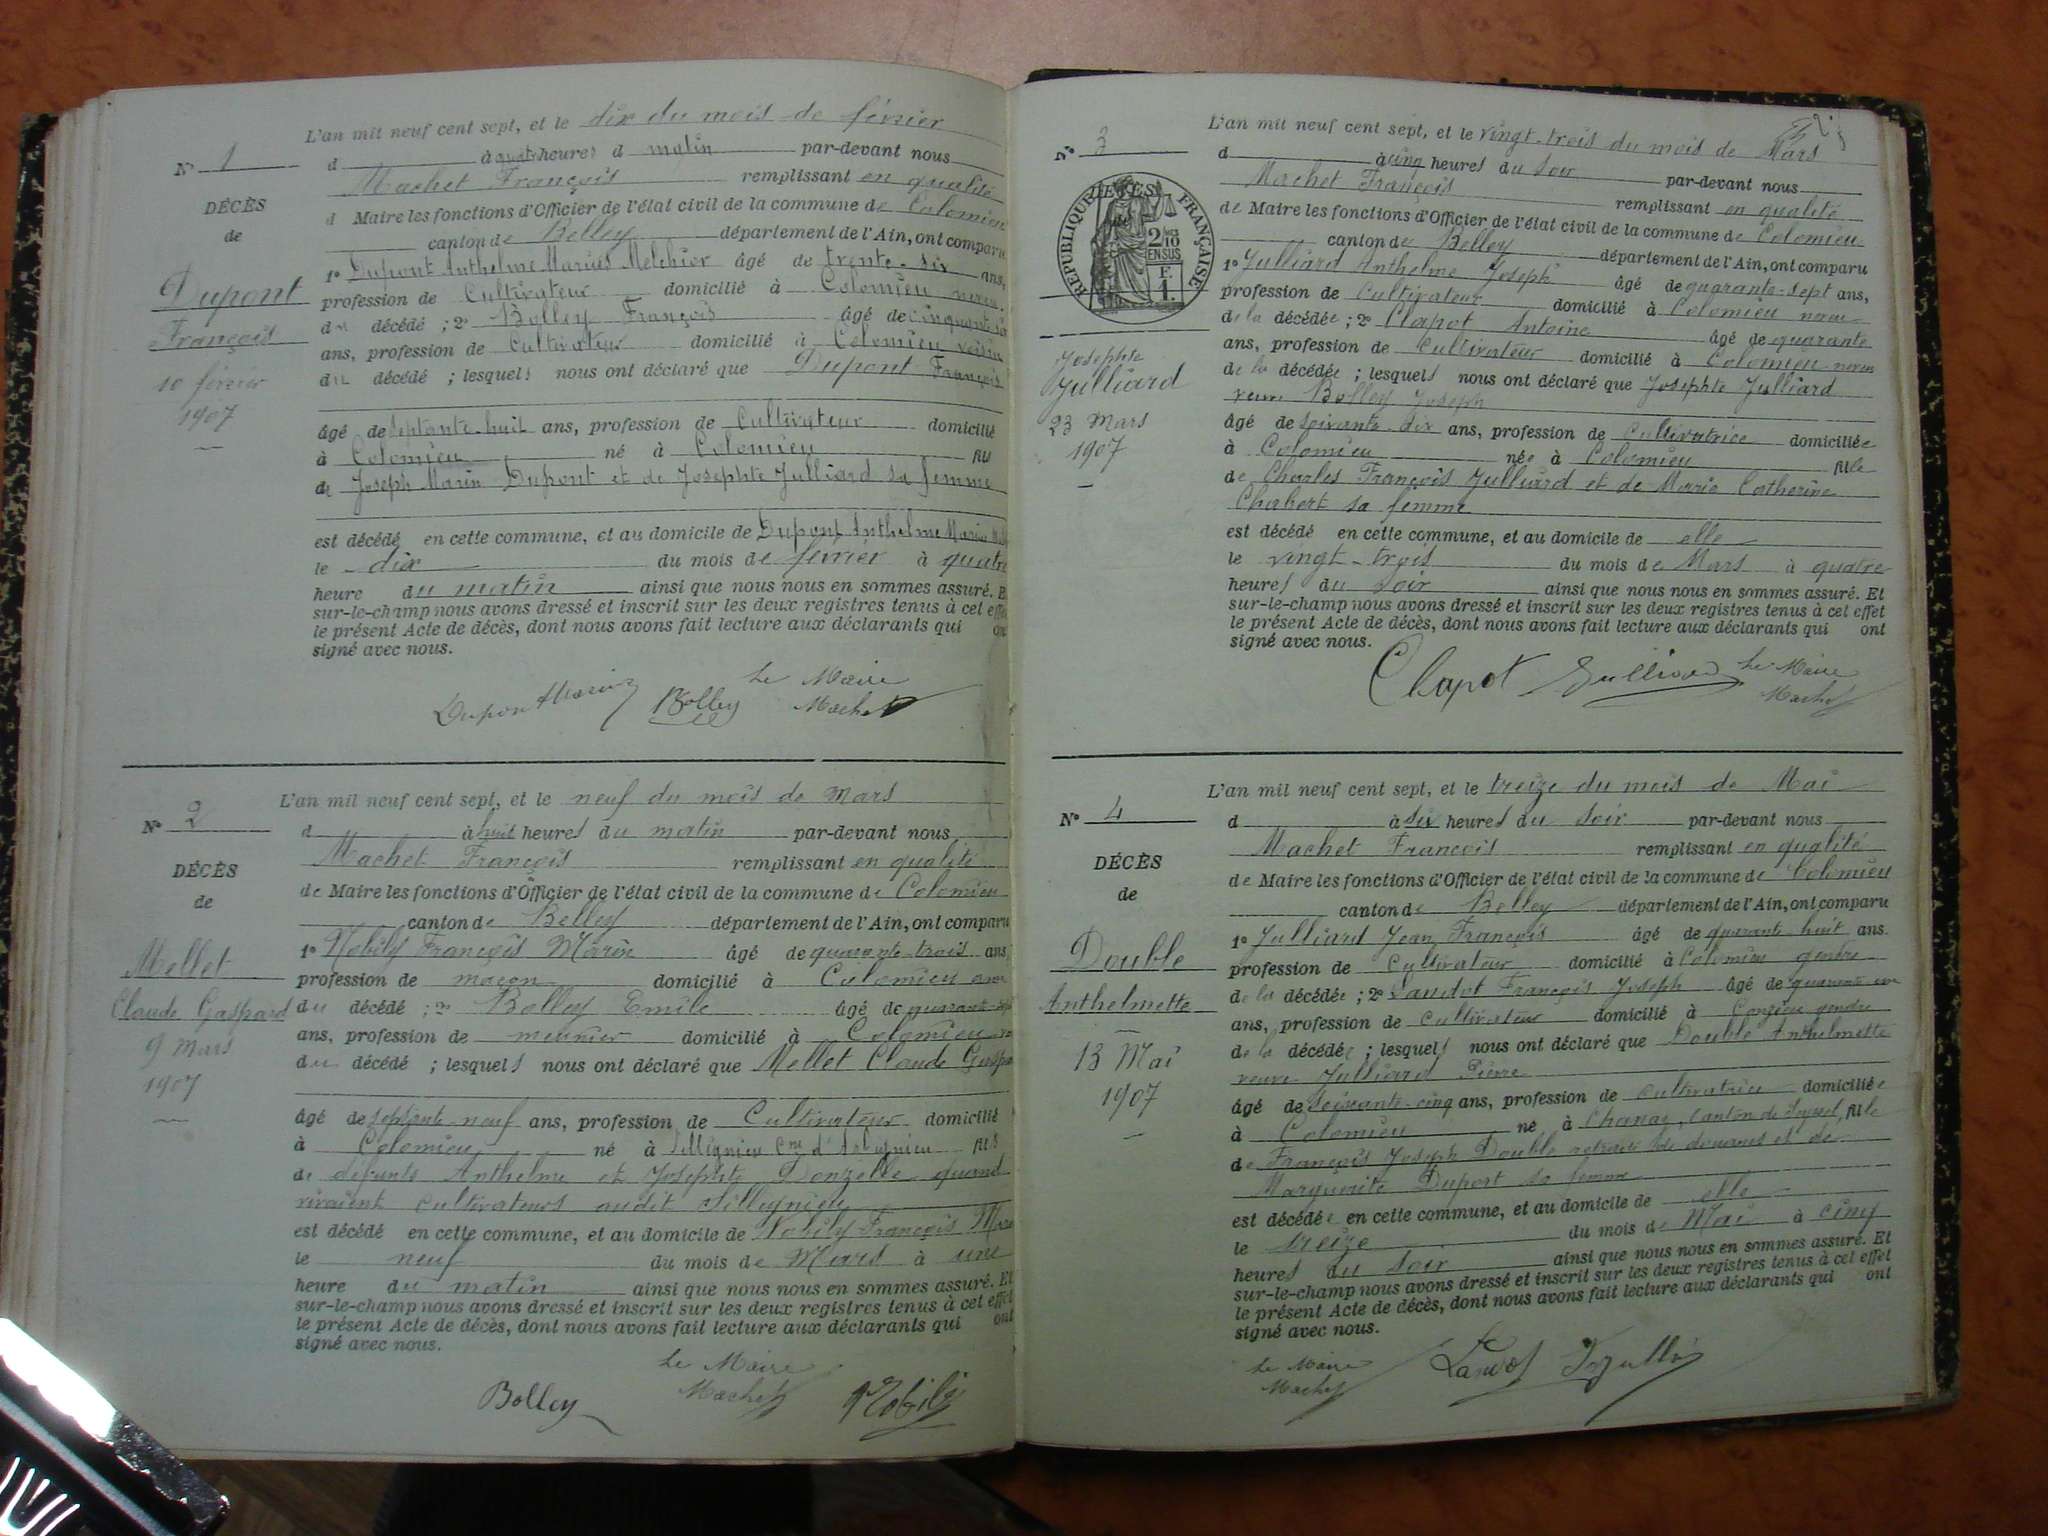 L'an mil neuf cent sept, et le dix du mois de février
N° 1
d à quatre heures d matin par-devant nous
Machet François remplissant en qualité
DÉCÈS
d Maire les fonctions d'Officier de l'état civil de la commune de Colomieu
de
canton de Belley département de l'Ain, ont comparu
1° Dupont Anthelme Marius Melchior âgé de trente-six ans,
Dupont
profession de Cultivateur domicilié à Colomieu neveu
François
du décédé ; 2° Bolley François âgé de cinquante six
ans, profession de Cultivateur domicilié à Colomieu voisin
10 février
du décédé ; lesquels nous ont déclaré que Dupont François
1907
âgé de septante-huit ans, profession de Cultivateur domicilié
à Colomieu né à Colomieu fils
de Joseph Marin Dupont et de Josephte Julliard sa femme
est décédé en cette commune, et au domicile de Dupont Anthelme Marius
le dix du mois de février à quatre
heure du matin ainsi que nous nous en sommes assuré. E
sur-le-champ nous avons dressé et inscrit sur les deux registres tenus à cet effe
le présent Acte de décès, dont nous avons fait lecture aux déclarants qui ont
signé avec nous.
Dupont Marius Bolley Le Maire
Machet
L'an mil neuf cent sept, et le neuf du mois de Mars
N° 2
d à huit heures du matin par-devant nous
Machet François remplissant en qualité
DÉCÈS
de Maire les fonctions d'Officier de l'état civil de la commune de Colomieu
de
canton de Belley département de l'Ain, ont comparu
1° Nobily François Marin âgé de quarante-trois ans,
Mellet
profession de maçon domicilié à Colomieu ami
Claude Gaspard
du décédé ; 2° Bolley Emile âgé de quarante-sept
9 Mars
ans, profession de meunier domicilié à Colomieu
1907
du décédé ; lesquels nous ont déclaré que Mellet Claude Gaspa
âgé de septante-neuf ans, profession de Cultivateur domicilié
à Colomieu né à Sillignieu Cne d'Arbignieu fils
de défunts Anthelme et Josephte Donzelle quand
vivaient cultivateurs audit Sillignieu
est décédé en cette commune, et au domicile de Nobily François Marin
le neuf du mois de Mars à une
heure du matin ainsi que nous nous en sommes assuré. Et
sur-le-champ nous avons dressé et inscrit sur les deux registres tenus à cet effet
le présent Acte de décès, dont nous avons fait lecture aux déclarants qui ont
signé avec nous.
Le Maire
Bolley Machet Nobily
2
L'an mil neuf cent sept, et le vingt-trois du mois de Mars
N° 3
d à cinq heures du soir par-devant nous
Machet François remplissant en qualité
RÉPUBLIQUE FRANÇAISE
2/10 EN SUS
F. 1.
de Maire les fonctions d'Officier de l'état civil de la commune de Colomieu
canton de Belley département de l'Ain, ont comparu
1° Julliard Anthelme Joseph âgé de quarante-sept ans,
profession de Cultivateur domicilié à Colomieu neveu
de la décédée ; 2° Clapot Antoine âgé de quarante
Josephte
ans, profession de Cultivateur domicilié à Colomieu neveu
Julliard
de la décédée ; lesquels nous ont déclaré que Josephte Julliard
veuve Bolley Joseph
23 Mars
âgé de soixante-dix ans, profession de Cultivatrice domiciliée
1907
à Colomieu née à Colomieu fille
de Charles François Julliard et de Marie Catherine
Chabert sa femme
est décédé en cette commune, et au domicile de elle
le vingt-trois du mois de Mars à quatre
heures du soir ainsi que nous nous en sommes assuré. Et
sur-le-champ nous avons dressé et inscrit sur les deux registres tenus à cet effet
le présent Acte de décès, dont nous avons fait lecture aux déclarants qui ont
signé avec nous.
Clapot Julliard Le Maire
Machet
L'an mil neuf cent sept, et le treize du mois de Mai
N° 4
d à six heures du soir par-devant nous
Machet François remplissant en qualité
DÉCÈS
de Maire les fonctions d'Officier de l'état civil de la commune de Colomieu
de
canton de Belley département de l'Ain, ont comparu
1° Julliard Jean François âgé de quarante-huit ans
Double
profession de Cultivateur domicilié à Colomieu gendre
Anthelmette
de la décédée ; 2° Landot François Joseph âgé de quarante un
ans, profession de Cultivateur domicilié à Conzieu gendre
13 Mai
de la décédée ; lesquels nous ont déclaré que Double Anthelmette
veuve Julliard Pierre
1907
âgé de soixante-cinq ans, profession de cultivatrice domiciliée
à Colomieu né à Chanay, canton de Seyssel, fille
de François Joseph Double retraité des douanes et de
Marguerite Duport sa femme
est décédée en cette commune, et au domicile de elle
le treize du mois de Mai à cinq
heures du soir ainsi que nous nous en sommes assuré. Et
sur-le-champ nous avons dressé et inscrit sur les deux registres tenus à cet effet
le présent Acte de décès, dont nous avons fait lecture aux déclarants qui ont
signé avec nous.
Le Maire Landot
Machet